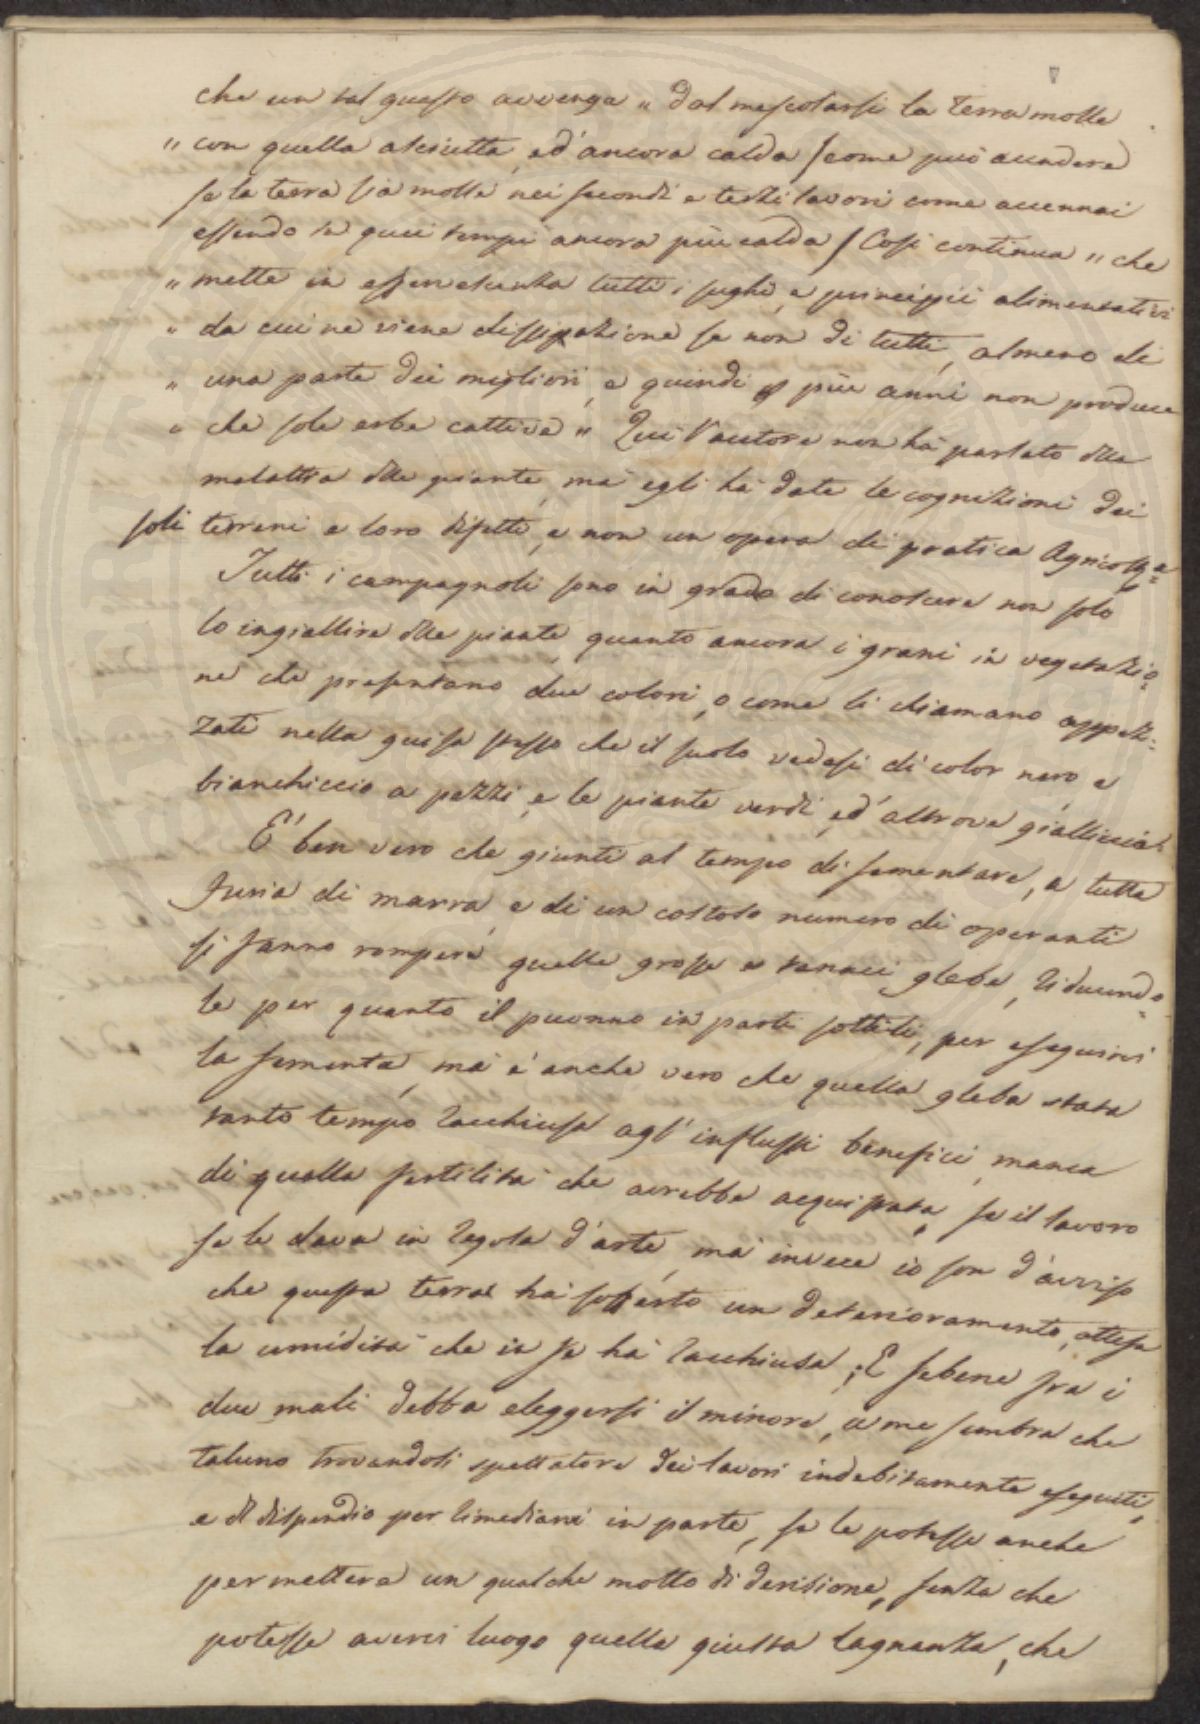 che un tal guasto avvenga „ dal mescolarsi la terra molle
„ con quella asciutta, ed' ancora calda / come può accadere
se la terra sia molle nei secondi e terzi lavori come accennai
essendo in quei tempi ancora più calda / Così continua „ che
„ mette in effervescenza tutti i sughi, e principii alimentativi
„ da cui ne viene dissipazione se non di tutti, almeno di
„ una parte dei migliori, e quindi più anni non produce
„ che sole erbe cattive „ Qui l'autore non ha parlato della
malattia delle piante, mà egli hà date le cognizioni dei
soli terreni e loro difetti, e non un opera di pratica Agricola
Tutti i campagnoli sono in grado di conoscere non solo
lo ingiallire delle piante, quanto ancora i grani in vegetazio=
ne che presentano due colori, o come li chiamano appezz=
zati nella guisa stessa che il suolo vedesi di color nero e
bianchiccio a pezzi, e le piante verdi, ed' altrove gialliccia.
E' ben vero che giunti al tempo di sementare, a tutta
furia di marra, e di un costoso numero di operanti
si fanno rompere quelle grosse e tenaci glebe, riducendo=
le per quanto il puonno in parti sottili, per eseguirci
la sementa, mà è anche vero che quella gleba stata
tanto tempo racchiusa agl' influssi benefici, manca
di quella fertilità che avrebbe acquistata, se il lavoro
se le dava in regola d'arte, mà invece io son d'avviso
che questa terra hà sofferto un deterioramento, attesa
la umidità che in se hà racchiusa; E sebene fra i
due mali debba eleggersi il minore, a me sembra che
taluno trovandosi spettatore dei lavori indebitamente eseguiti,
e del dispendio per rimediarvi in parte, se le potesse anche
permettere un qualche motto di derisione, senza che
potesse averci luogo quella giusta lagnanza, che